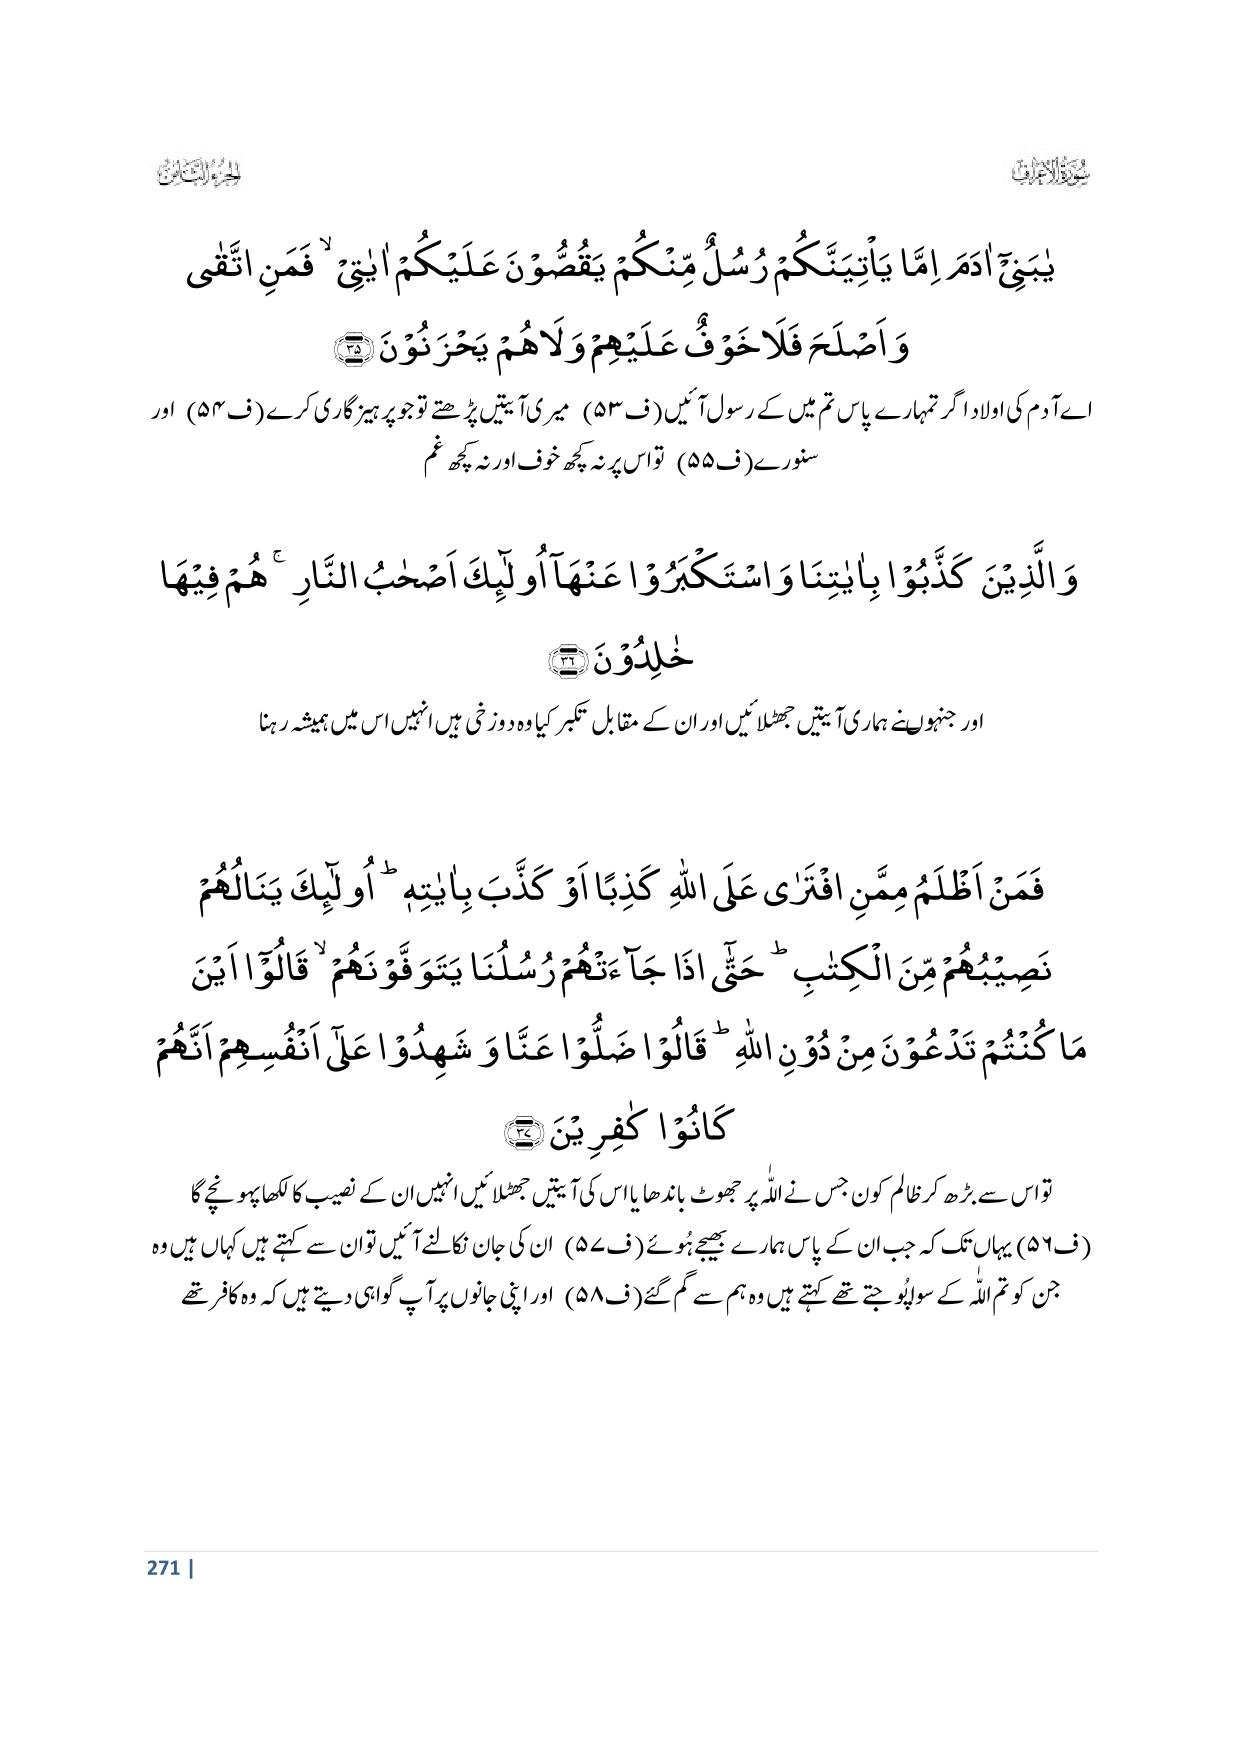 سُوۡرَۃُ الۡاَعۡرَاف
الجزء الثامن
یٰبَنِیۡۤ اٰدَمَ اِمَّا یَاۡتِیَنَّکُمۡ رُسُلٌ مِّنۡکُمۡ یَقُصُّوۡنَ عَلَیۡکُمۡ اٰیٰتِیۡ ۙ فَمَنِ اتَّقٰی
وَ اَصۡلَحَ فَلَا خَوۡفٌ عَلَیۡہِمۡ وَ لَا ہُمۡ یَحۡزَنُوۡنَ ﴿۳۵﴾
اے آدم کی اولاد اگر تمہارے پاس تم میں کے رسول آئیں (ف۵۳) میری آیتیں پڑھتے تو جو پرہیزگاری کرے (ف۵۴) اور
سنورے (ف۵۵) تو اس پر نہ کچھ خوف اور نہ کچھ غم
وَ الَّذِیۡنَ کَذَّبُوۡا بِاٰیٰتِنَا وَ اسۡتَکۡبَرُوۡا عَنۡہَاۤ اُولٰٓئِکَ اَصۡحٰبُ النَّارِ ۚ ہُمۡ فِیۡہَا
خٰلِدُوۡنَ ﴿۳۶﴾
اور جنہوں نے ہماری آیتیں جھٹلائیں اور ان کے مقابل تکبر کیا وہ دوزخی ہیں انہیں اس میں ہمیشہ رہنا
فَمَنۡ اَظۡلَمُ مِمَّنِ افۡتَرٰی عَلَی اللہِ کَذِبًا اَوۡ کَذَّبَ بِاٰیٰتِہٖ ؕ اُولٰٓئِکَ یَنَالُہُمۡ
نَصِیۡبُہُمۡ مِّنَ الۡکِتٰبِ ؕ حَتّٰۤی اِذَا جَآءَتۡہُمۡ رُسُلُنَا یَتَوَفَّوۡنَہُمۡ ۙ قَالُوۡۤا اَیۡنَ
مَا کُنۡتُمۡ تَدۡعُوۡنَ مِنۡ دُوۡنِ اللہِ ؕ قَالُوۡا ضَلُّوۡا عَنَّا وَ شَہِدُوۡا عَلٰۤی اَنۡفُسِہِمۡ اَنَّہُمۡ
کَانُوۡا کٰفِرِیۡنَ ﴿۳۷﴾
تو اس سے بڑھ کر ظالم کون جس نے اللّٰہ پر جھوٹ باندھا یا اس کی آیتیں جھٹلائیں انہیں ان کے نصیب کا لکھا پہونچے گا
(ف۵۶) یہاں تک کہ جب ان کے پاس ہمارے بھیجے ہُوئے (ف۵۷) ان کی جان نکالنے آئیں تو ان سے کہتے ہیں کہاں ہیں وہ
جن کو تم اللّٰہ کے سوا پُوجتے تھے کہتے ہیں وہ ہم سے گم گئے (ف۵۸) اور اپنی جانوں پر آپ گواہی دیتے ہیں کہ وہ کافر تھے
271 |